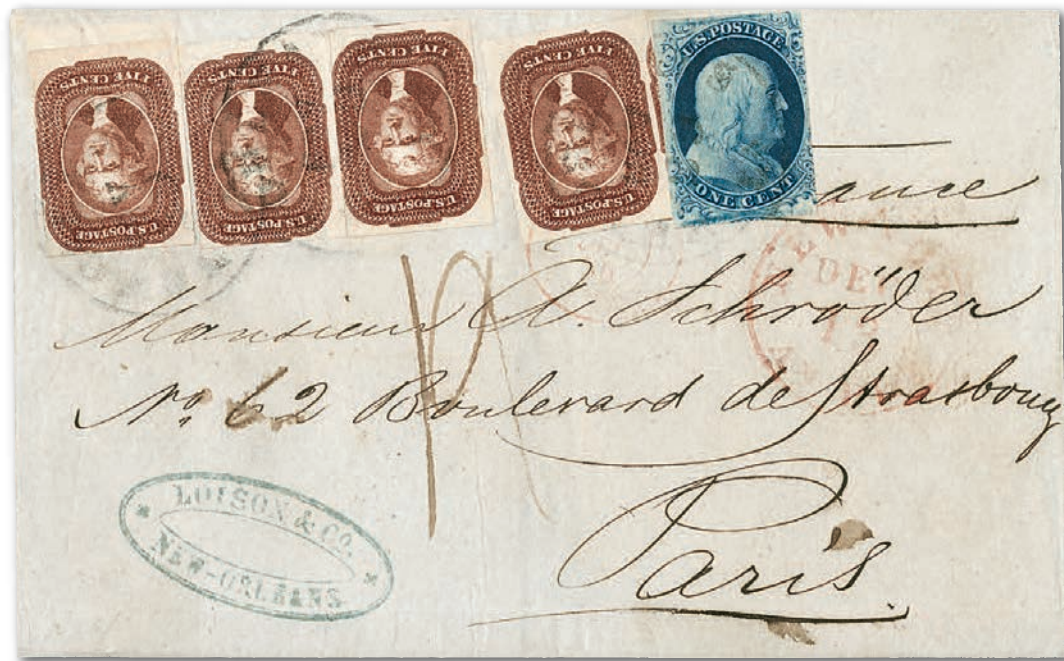 FIVE CENTS
U.S. POSTAGE
FIVE CENTS
U.S. POSTAGE
FIVE CENTS
U.S. POSTAGE
FIVE CENTS
U.S. POSTAGE
U.S. POSTAGE
ONE CENT
DEC
Monsieur A. Schröder
No 62 Boulevard de Strasbourg
Paris.
LOISON & CO.
NEW-ORLEANS